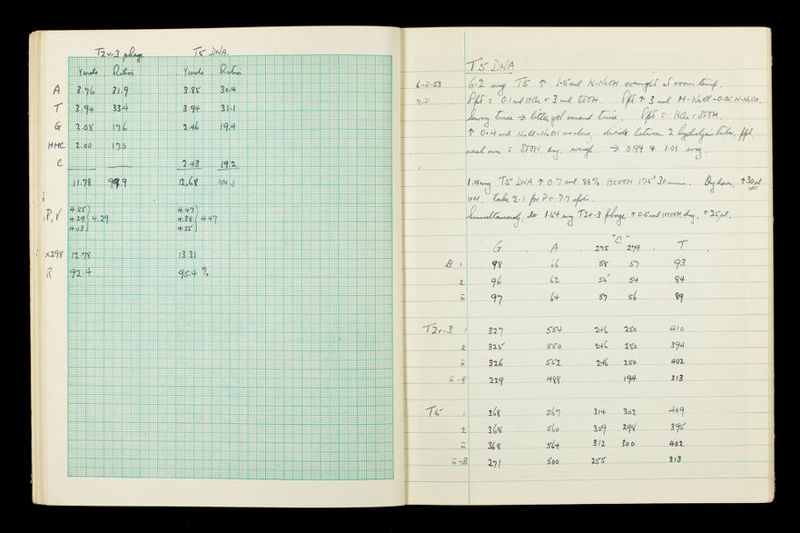 T2r-3 phage T5 DNA
Yields Ratios Yields Ratios
A 3.76 31.9 3.85 30.4
T 3.94 33.4 3.94 31.1
G 2.08 17.6 2.46 19.4
HMC 2.00 17.0
C 2.43 19.2
11.78 99.9 12.68 100.1
4.55 4.47
P, 4.29 4.29 4.38 4.47
4.03 4.55
x298 12.78 13.31
R 92.4 95.4 %
T5 DNA
6-ii-53 6.2 mg T5 ↑ 1.5 ml N-NaOH overnight at room temp.
Ppt 0.1 ml HCl + 3 ml EtOH. Ppt ↑ 3 ml M-NaCl-0.05 N-NaOH,
twice → little gel second time. Ppt HCl + EtOH.
↑ 0.4 ml NaCl-NaOH, divide between 2 hydrolysis tubes, ppt,
wash EtOH dry, weigh → 0.99 & 1.01 mg.
1.01 mg T5 DNA ↑ 0.7 ml 88% HCOOH 175° 30 min. Dry down, ↑ 30 µl
HCl. Take 2.1 for P
Simultaneously, do 1.54 mg T2r-3 phage ↑ 0.5 ml HCOOH dry, ↑ 25 µl.
"C"
G A 278 279 T
B 1 98 66 58 57 93
2 96 62 55 54 84
97 64 57 56 89
T2r-3 1 327 554 246 250 410
2 325 550 246 250 394
326 552 246 250 402
229 488 194 313
T5 1 368 567 314 302 409
2 368 560 309 298 395
368 564 312 300 402
271 500 255 313